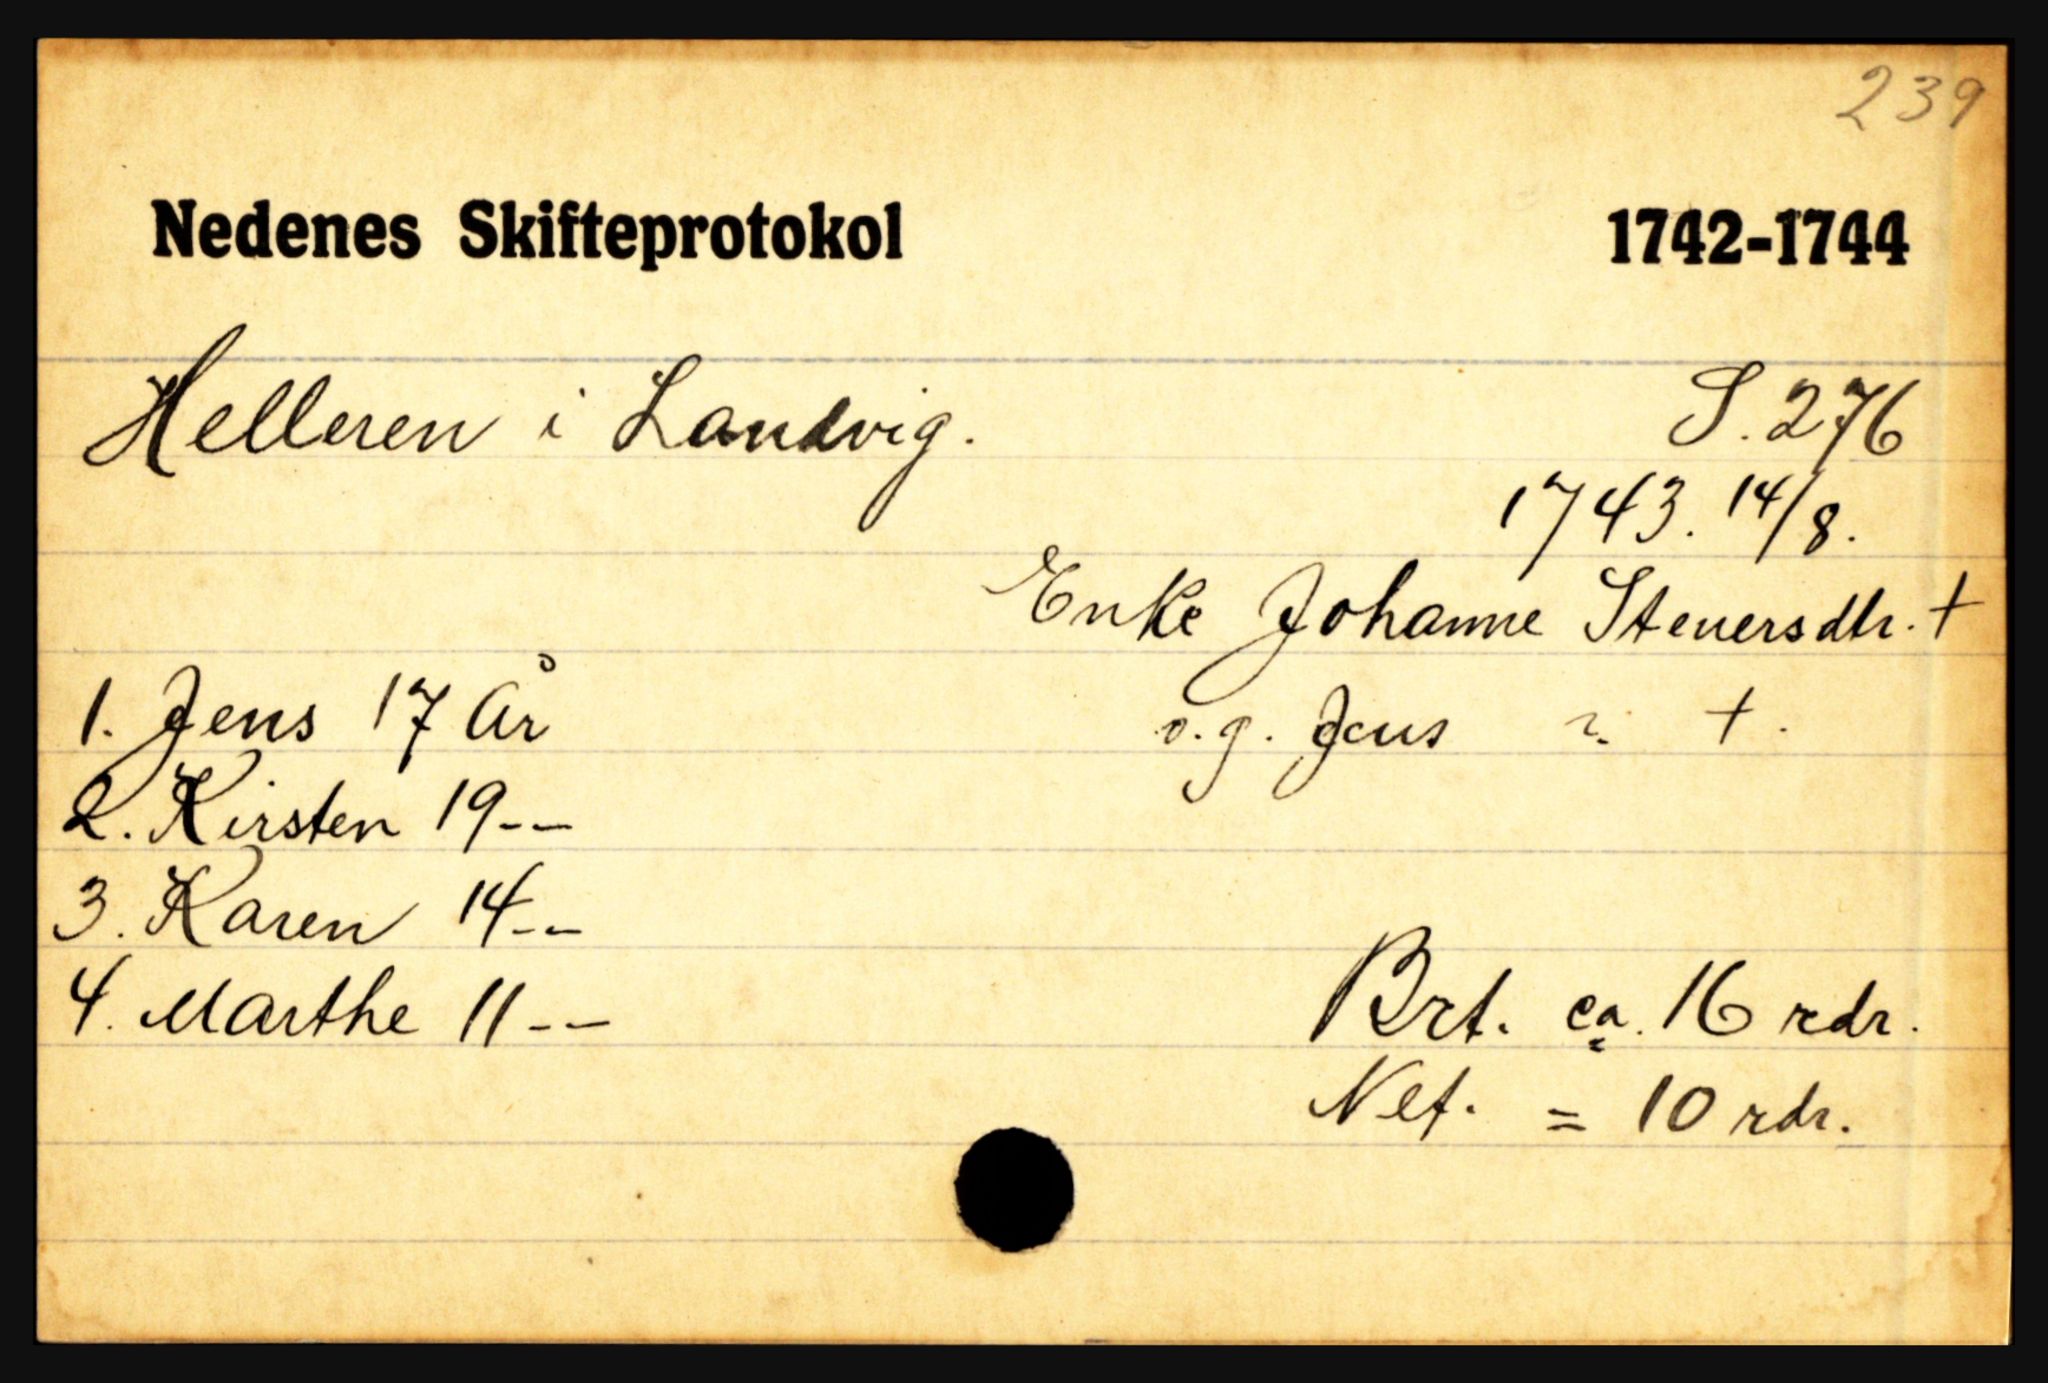 239
Nedenes Skifteprotokol 1742-1744
Helleren i Landvig. S. 276
1743. 14/8.
Enke Johanne Stenersdtr. +
1. Jens 17 År o.g. Jens ~. +.
2. Kirsten 19 --
3. Karen 14 --
4. Marthe 11 -- Brt. ca. 16 rdr.
Net. = 10 rdr.